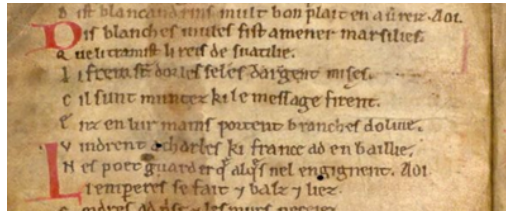 D ist blancandrins mult bon plait en aureiz. Aoi.
Dis blanches mules fist amener marsilies.
Q ue li tramist li reis de suatilie.
L i frein sunt dor les seles dargent mises.
C il sunt muntez ki le message firent.
E nz en lur mains portent branches doliue.
V indrent a charles ki france ad en baillie.
N es poet guarder que alques nel engignent. Aoi
Li empereres se fait 7 balz 7 liez.
C ordres ad prise 7 les murs peceiez